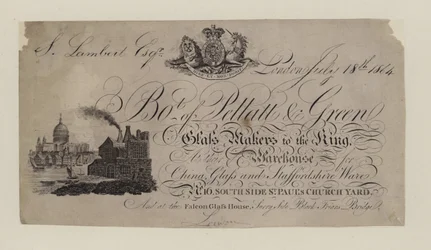 S. Lambert Esqr.
London July 18th 1814
Bot. of Pellatt & Green
Glass Makers to the King.
At their Warehouse for
China, Glass and Staffordshire Ware
No. 16, SOUTH SIDE ST. PAUL'S CHURCH YARD.
And at the Falcon Glass House, Surry Side Black Friars Bridge